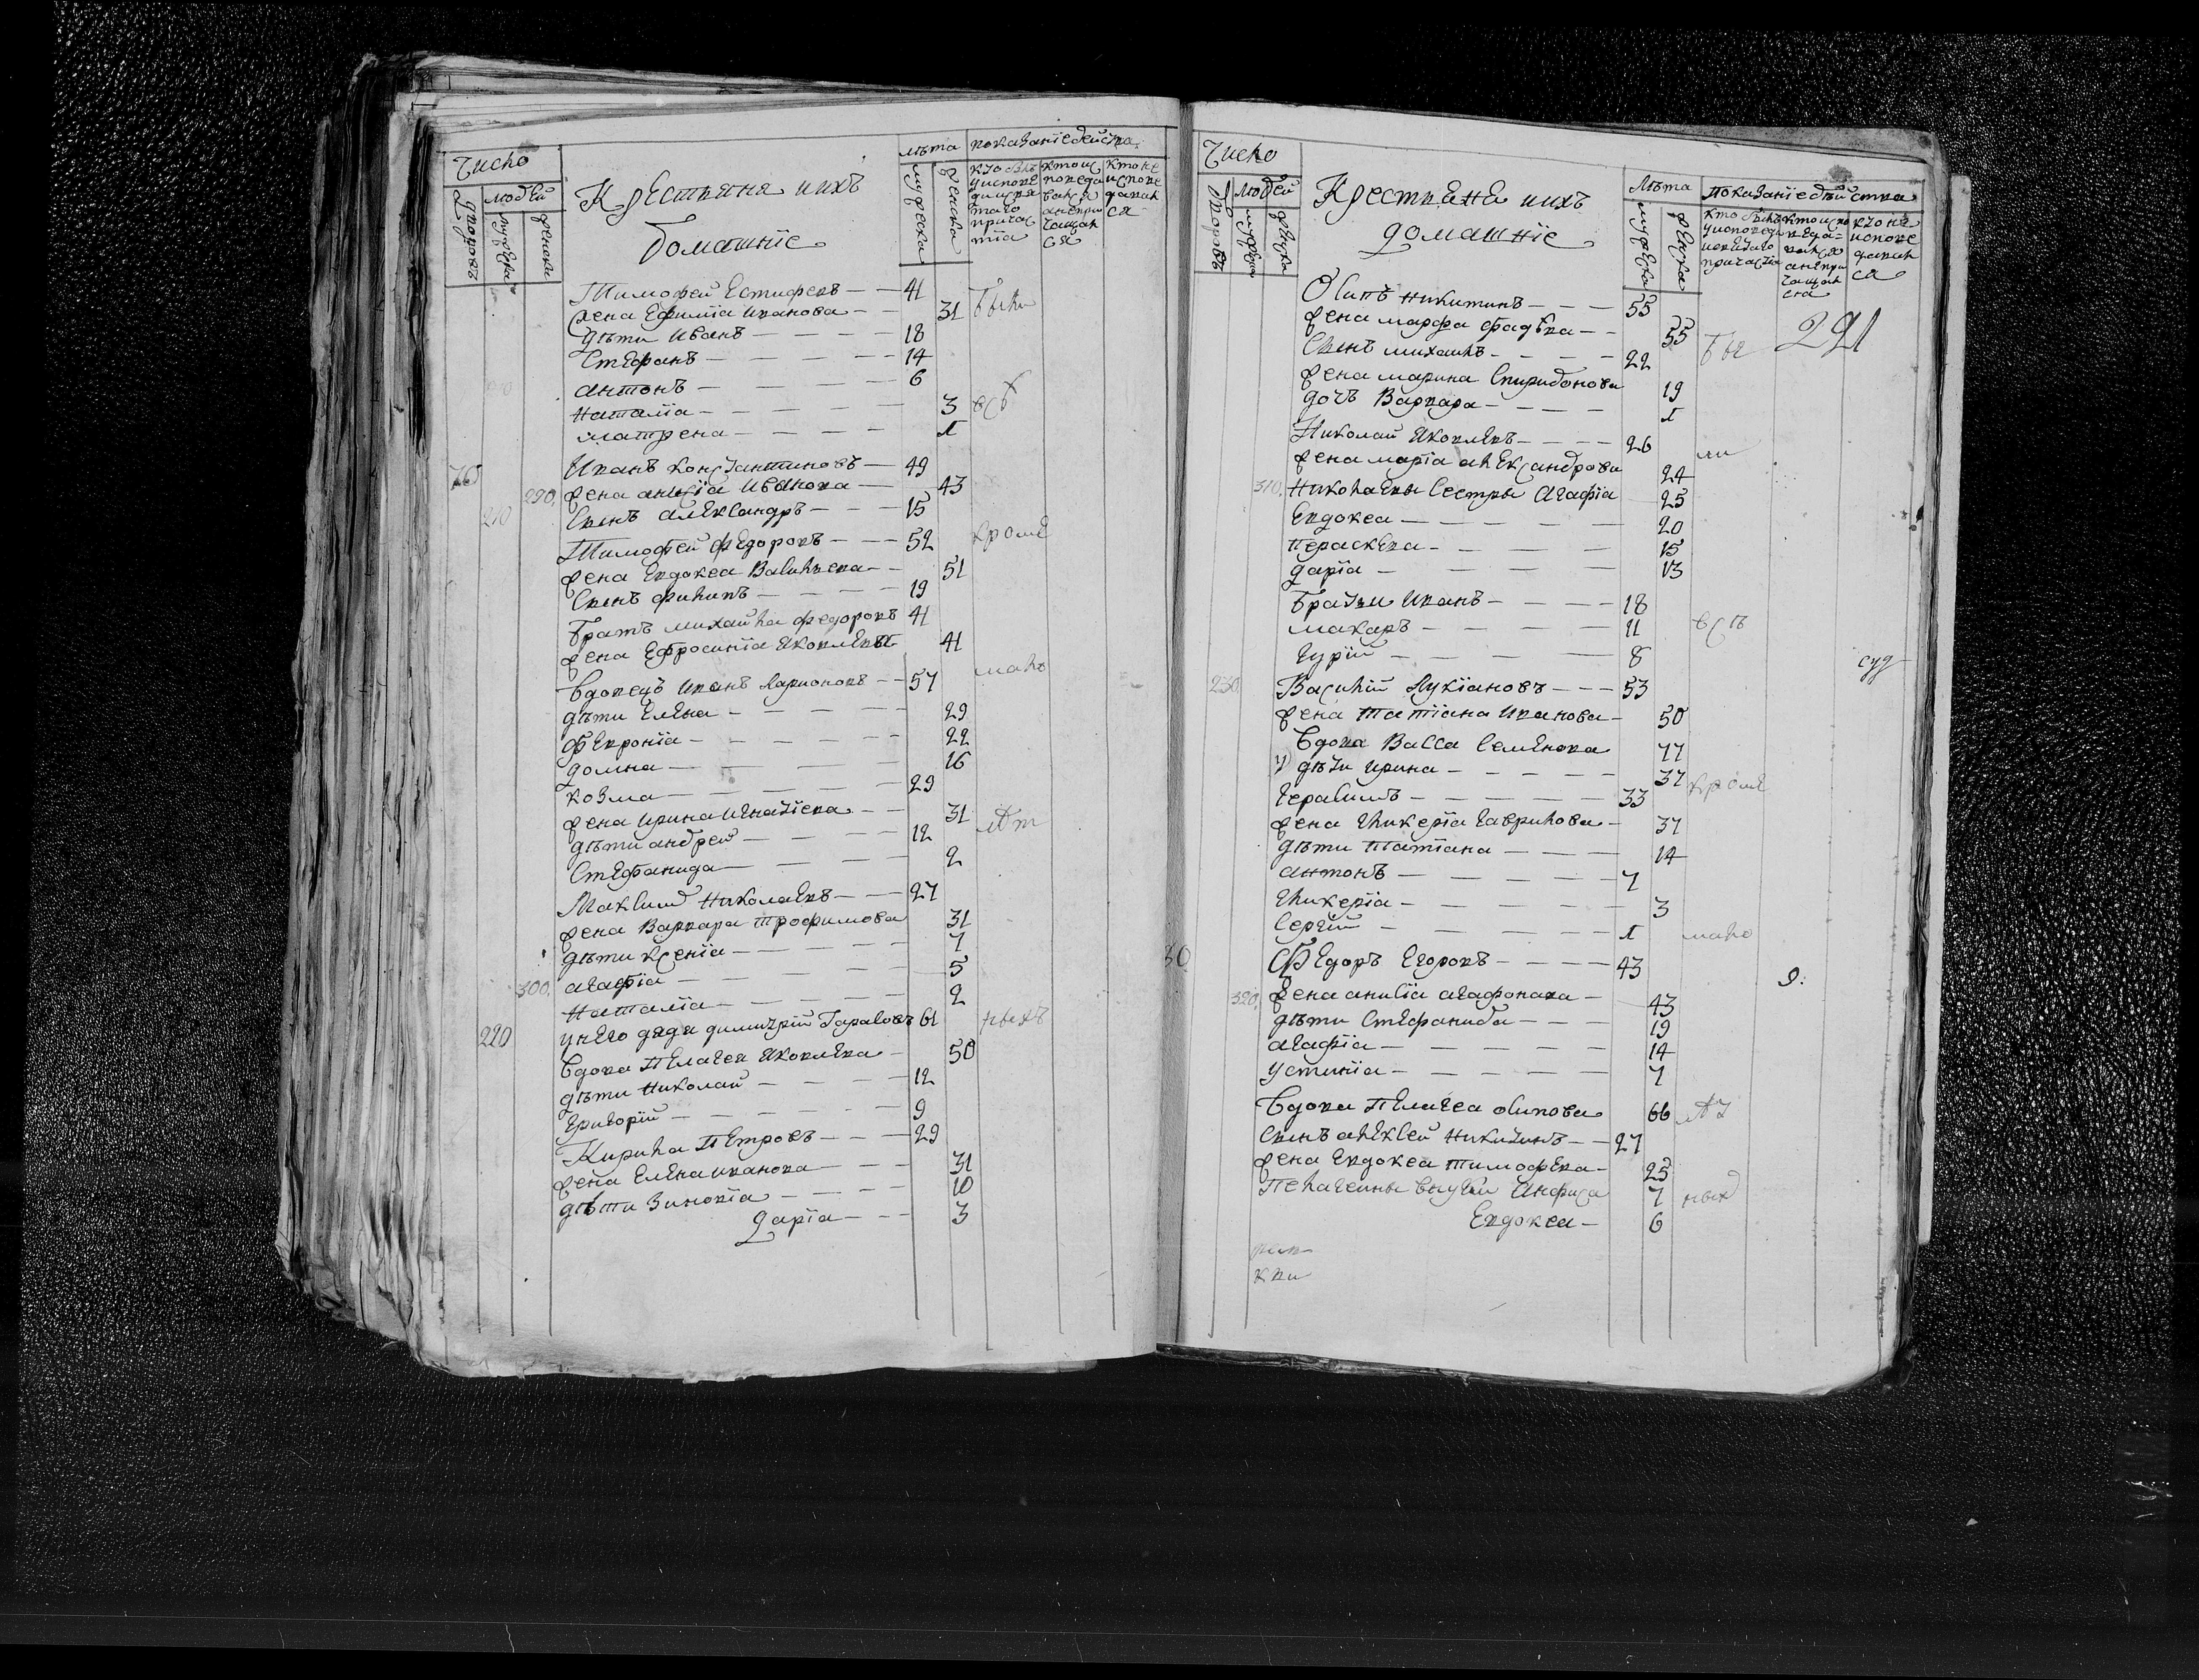 Число
людей
дворовъ
мужеска
женска
Крестьяня ихъ
домашніе
лѣта
мужеска
женска
показаніе действа
кто былъ у исповеди и святаго причастія
кто исповедався а не причащался
кто не исповедался
Тимофей Естифеевъ 41
жена Ефимія Иванова 31 были
дѣти Иванъ 18
Стефанъ 14
антонъ 6
Наталіа 3 всѣ
матрена 1
76 Иванъ Константиновъ 49
290 жена анисіа Иванова 43
210 Сынъ Александръ 15
Тимофей Федоровъ 52 кромѣ
жена Евдокеа Васильева 51
Сынъ филипъ 19
братъ михайла федоровъ 41
жена Ефросиніа Яковлева 41
вдовецъ Иванъ Ларионовъ 57 мало
дѣти Елена 29
Февроніа 22
домна 16
козма 29
жена ирина игнатіева 31 лѣт
дѣти андрей 12
Стефанида 2
Максимъ Николаевъ 27
жена Варвара трофимова 31
дѣти ксеніа 7
300 агафіа 5
Наталіа 2
220 у него дядя димитрій Тарасовъ 61 ныхъ
вдова Пелагея Яковлева 50
дѣти Николай 12
Григорій 9
Кирила Петровъ 29
жена Елена иванова 31
дѣти Зиновіа 10
Даріа 3
Число
людей
дворовъ
мужеска
женска
Крестьяне ихъ
домашніе
Лѣта
мужеска
женска
показаніе дѣйства
кто былъ у исповеди и святаго причастіа
кто исповедался а не причащался
кто не исповедался
Осипъ Никитинъ 55
жена марфа фадѣва 55
291
Сынъ михаилъ 22 бы
жена марина Спиридонова 19
дочь Варвара 1
Николай Яковлевъ 26 ли
жена маріа александрова 24
310 Николаевы Сестры Агафіа 25
Евдокеа 20
Пераскева 15
даріа 13
братьи Иванъ 18
макаръ 11 всѣ
Гурій 8
суд
230 Василій Лукіановъ 53
жена татіана Иванова 50
вдова Васса Семенова 77
у дѣти ирина 37 кромѣ
Герасимъ 33
жена Гликеріа Гаврилова 37
дѣти татіана 14
антонъ 7
Гликеріа 3
Сергій 1 мало
30 Федоръ Егоровъ 43
9.
320 жена анисіа агафонова 43
дѣти Стефанида 19
агафіа 14
устиніа 7
вдова Пелагеа осипова 66 лѣт
сынъ алексей Никитинъ 27
жена Евдокеа тимофева 25
Пелагеины внучки Анфиса 7 ных
Евдокеа 6